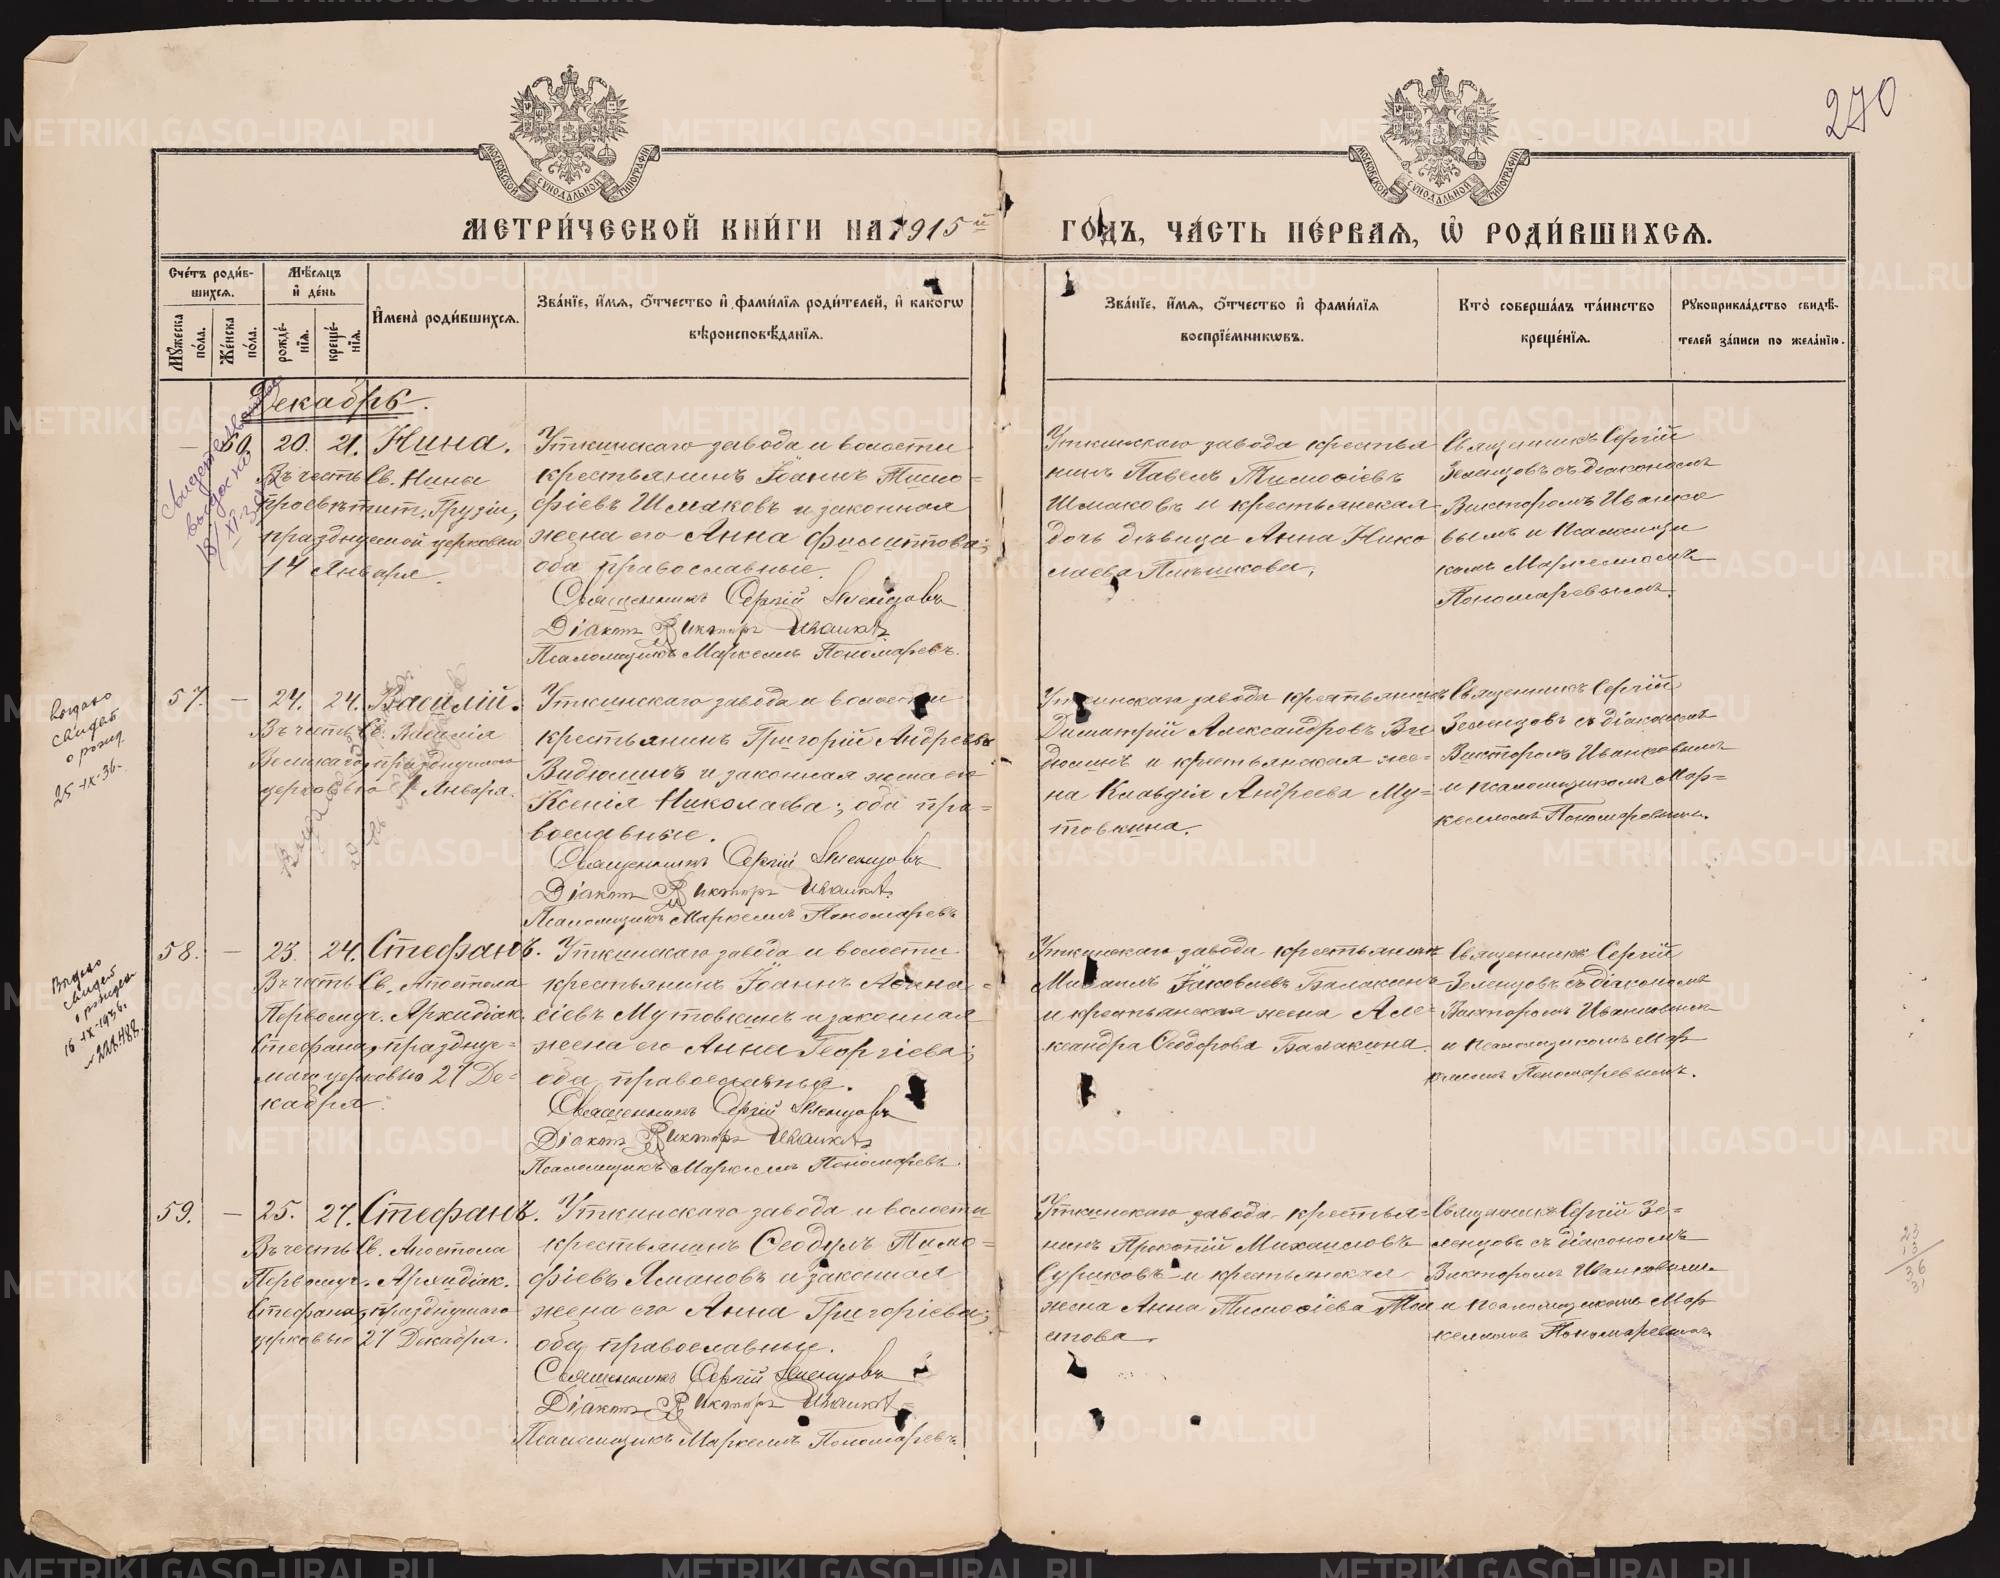 270
МОСКОВСКОЙ СѴНОДАЛЬНОЙ ТИПОГРАФІИ
МОСКОВСКОЙ СѴНОДАЛЬНОЙ ТИПОГРАФІИ
МЕТРИ́ЧЕСКОЙ КНИ́ГИ НА 1915й
ГО́ДЪ, ЧА́СТЬ ПЕ́РВАЯ, Ѡ҆ РОДИ́ВШИХСЯ.
Сче́тъ роди́в-
шихся.
Мꙋ́жеска по́ла.
Же́нска по́ла.
Мѣ́сяцъ и҆ де́нь
рожде́-нїя.
креще́-нїя.
И҆мена̀ роди́вшихся.
Зва́нїе, и҆́мя, ѻ҆́тчество и҆ фами́лїя роди́телей, и҆ како́гѡ
вѣроисповѣ́данїя.
Зва́нїе, и҆́мя, ѻ҆́тчество и҆ фами́лїя
воспрїе́мникѡвъ.
Кто̀ соверша́лъ та́инство
креще́нїя.
Рꙋкоприкла́дство свидѣ́-
телей за́писи по жела́нїю.
Декабрь.
— 50. 20. 21. Нина.
Въ честь Св. Нины
просвѣтит. Грузіи,
празднуемой церковью
14 Января.
Уткинскаго завода и волости
крестьянинъ Іоаннъ Тимо-
фіевъ Шмаковъ и законная
жена его Анна Филиппова;
оба православные.
Священникъ Сергій Зеленцовъ
Діаконъ Викторъ Иванковъ
Псаломщикъ Маркеллъ Пономаревъ.
Уткинскаго завода крестья
нинъ Павелъ Тимофіевъ
Шмаковъ и крестьянская
дочь дѣвица Анна Нико
лаева
Священникъ Сергій
Зеленцовъ съ діакономъ
Викторомъ Иванко
вымъ и псаломщи
комъ Маркелломъ
Пономаревымъ.
Свидетельство
выдано
57. — 24. 24. Василій.
Въ честь Св. Василія
Великаго, празднуемаго
церковью 1 Января.
Уткинскаго завода и волости
крестьянинъ Григорій Андреевъ
Видюлинъ и законная жена его
Ксенія Николаева; оба пра-
вославные.
Священникъ Сергій Зеленцовъ
Діаконъ Викторъ Иванковъ
Псаломщикъ Маркеллъ Пономаревъ
Уткинскаго завода крестьянинъ
Димитрій Александровъ Ви
дюлинъ и крестьянская же-
на Клавдія Андреева Му-
товкина.
Священникъ Сергій
Зеленцовъ съ діакономъ
Викторомъ Иванковымъ
и псаломщикомъ Мар-
келломъ Пономаревымъ.
выдано
свидет
о рожд.
25-IX-36.
58. — 23. 24. Стефанъ.
Въ честь Св. Апостола
Первомуч. Архидіак.
Стефана, праздну-
маго церковью 27 Де-
кабря.
Уткинскаго завода и волости
крестьянинъ Іоаннъ Аѳана-
сіевъ Мутовкинъ и законная
жена его Анна Георгіева;
оба православные.
Священникъ Сергій Зеленцовъ
Діаконъ Викторъ Иванковъ
Псаломщикъ Маркеллъ Пономаревъ.
Уткинскаго завода крестьянинъ
Михаилъ Іаковлевъ Балакинъ
и крестьянская жена Але-
ксандра Ѳеодорова Балакина.
Священникъ Сергій
Зеленцовъ съ діакономъ
Викторомъ Иванковымъ
и псаломщикомъ Мар
келломъ Пономаревымъ.
Выдано
свидет
о рожден
16-IX-1936г.
59. — 25. 27. Стефанъ.
Въ честь Св. Апостола
Первомуч. Архидіак.
Стефана, празднумаго
церковью 27 Декабря.
Уткинскаго завода и волости
крестьянинъ Ѳеодулъ Тимо-
фіевъ Ямановъ и законная
жена его Анна Григоріева;
оба православные.
Священникъ Сергій Зеленцовъ
Діаконъ Викторъ Иванковъ
Псаломщикъ Маркеллъ Пономаревъ.
Уткинскаго завода крестья-
нинъ Прокопій Михаиловъ
Суриковъ и крестьянская
жена Анна Тимофіева
Священникъ Сергій Зе-
ленцовъ съ діакономъ
Викторомъ Иванковымъ
и псаломщикомъ Мар
келломъ Пономаревымъ.
23
13
36
31
METRIKI.GASO-URAL.RU